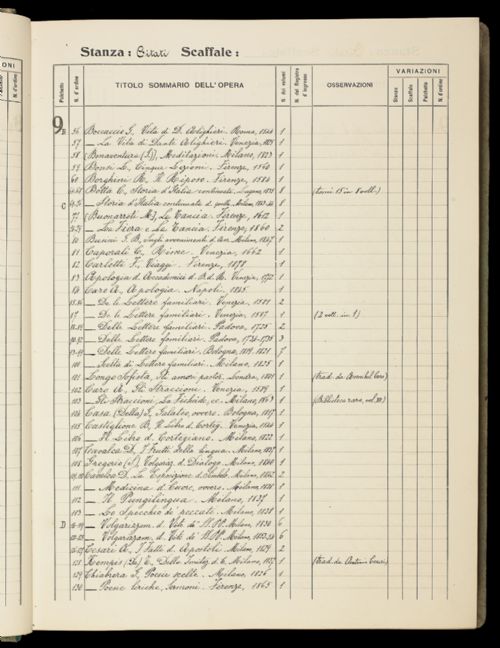 Stanza: Citati Scaffale:
VARIAZIONI
Palchetto N. d'ordine TITOLO SOMMARIO DELL'OPERA N. dei volumi N. del Registro d'ingresso OSSERVAZIONI Stanza Scaffale Palchetto N. d'ordine
9 B 56 Boccaccio G. Vita di D. Alighieri. Roma, 1 
57 — La Vita di Dante Alighieri. Venezia, 1
58 (Bonaventura (S.)), Meditazioni. Milano, 1823 1
59 Bonsi L. Cinque Lezioni. Firenze, 1560 1
60 Borghini R. Il Riposo. Firenze, 1584 1
Botta C. Storia d'Italia continuata. 8 (tomi 15 in 8 voll.)
C — Storia d'Italia continuata d. quella Milano, 8
(Buonarroti M.), La Tancia. Firenze, 1612 1
— La Fiera e La Tancia. Firenze, 1860 2
80 avvenimenti d'Arn. Milano, 1847 1
81 Caporali C., Rime. Venezia, 1662 1
82 Carletti F., Viaggi. Firenze, 1878 1
83 Apologia d. Accademici d. B. d. R. Venezia, 1
84 Caro A. Apologia. Napoli, 1
— De le Lettere familiari. Venezia, 1581 2
87 — De le Lettere familiari. Venezia, 1587 1 (2 voll. in 1)
— Delle Lettere familiari. Padova, 1725 2
— Delle Lettere familiari. Padova, 3
— Delle Lettere familiari. Bologna, 7
100 — Scelta di Lettere familiari. Milano, 1825 1
101 Longo Sofista, Gli amori past. Londra, 1801 1 (trad. da Annibal Caro)
102 Caro A., Gli Straccioni. Venezia, 1589 1
103 — Gli Straccioni, La Ficheide, ec. Milano, 1863 1 (Biblioteca rara, vol. )
104 Casa (Della) G., Galateo, ovvero. Bologna, 1
105 Castiglione B., Il Libro d. Corteg. Venezia, 1
106 — Il Libro d. Cortegiano. Milano, 1822 1
107 Cavalca D., I Frutti della lingua. Milano, 1837 1
108 Gregorio (S.), Volgarizz. d. Dialogo. Milano, 1840 1
Cavalca D., La Esposizione d. Simbolo. Milano, 1842 2
111 — Medicina d. Cuore, ovvero. Milano, 1838 1
112 — Il Pungilingua. Milano, 1837 1
113 — Lo Specchio de' peccati. Milano, 1838 1
D — Volgarizzam. d. Vite de' SS. PP. Milano, 1830 6
— Volgarizzam. d. Vite de' SS. PP. Milano, 6
Cesari A., I Fatti d. Apostoli. Milano, 2
128 Kempis (Da) T., Della Imitaz. di C. Milano, 1 (trad. da Antonio Cesari)
129 Chiabrera G., Poesie scelte. Milano, 1826 1
130 — Poesie liriche, Sermoni. Firenze, 1865 1